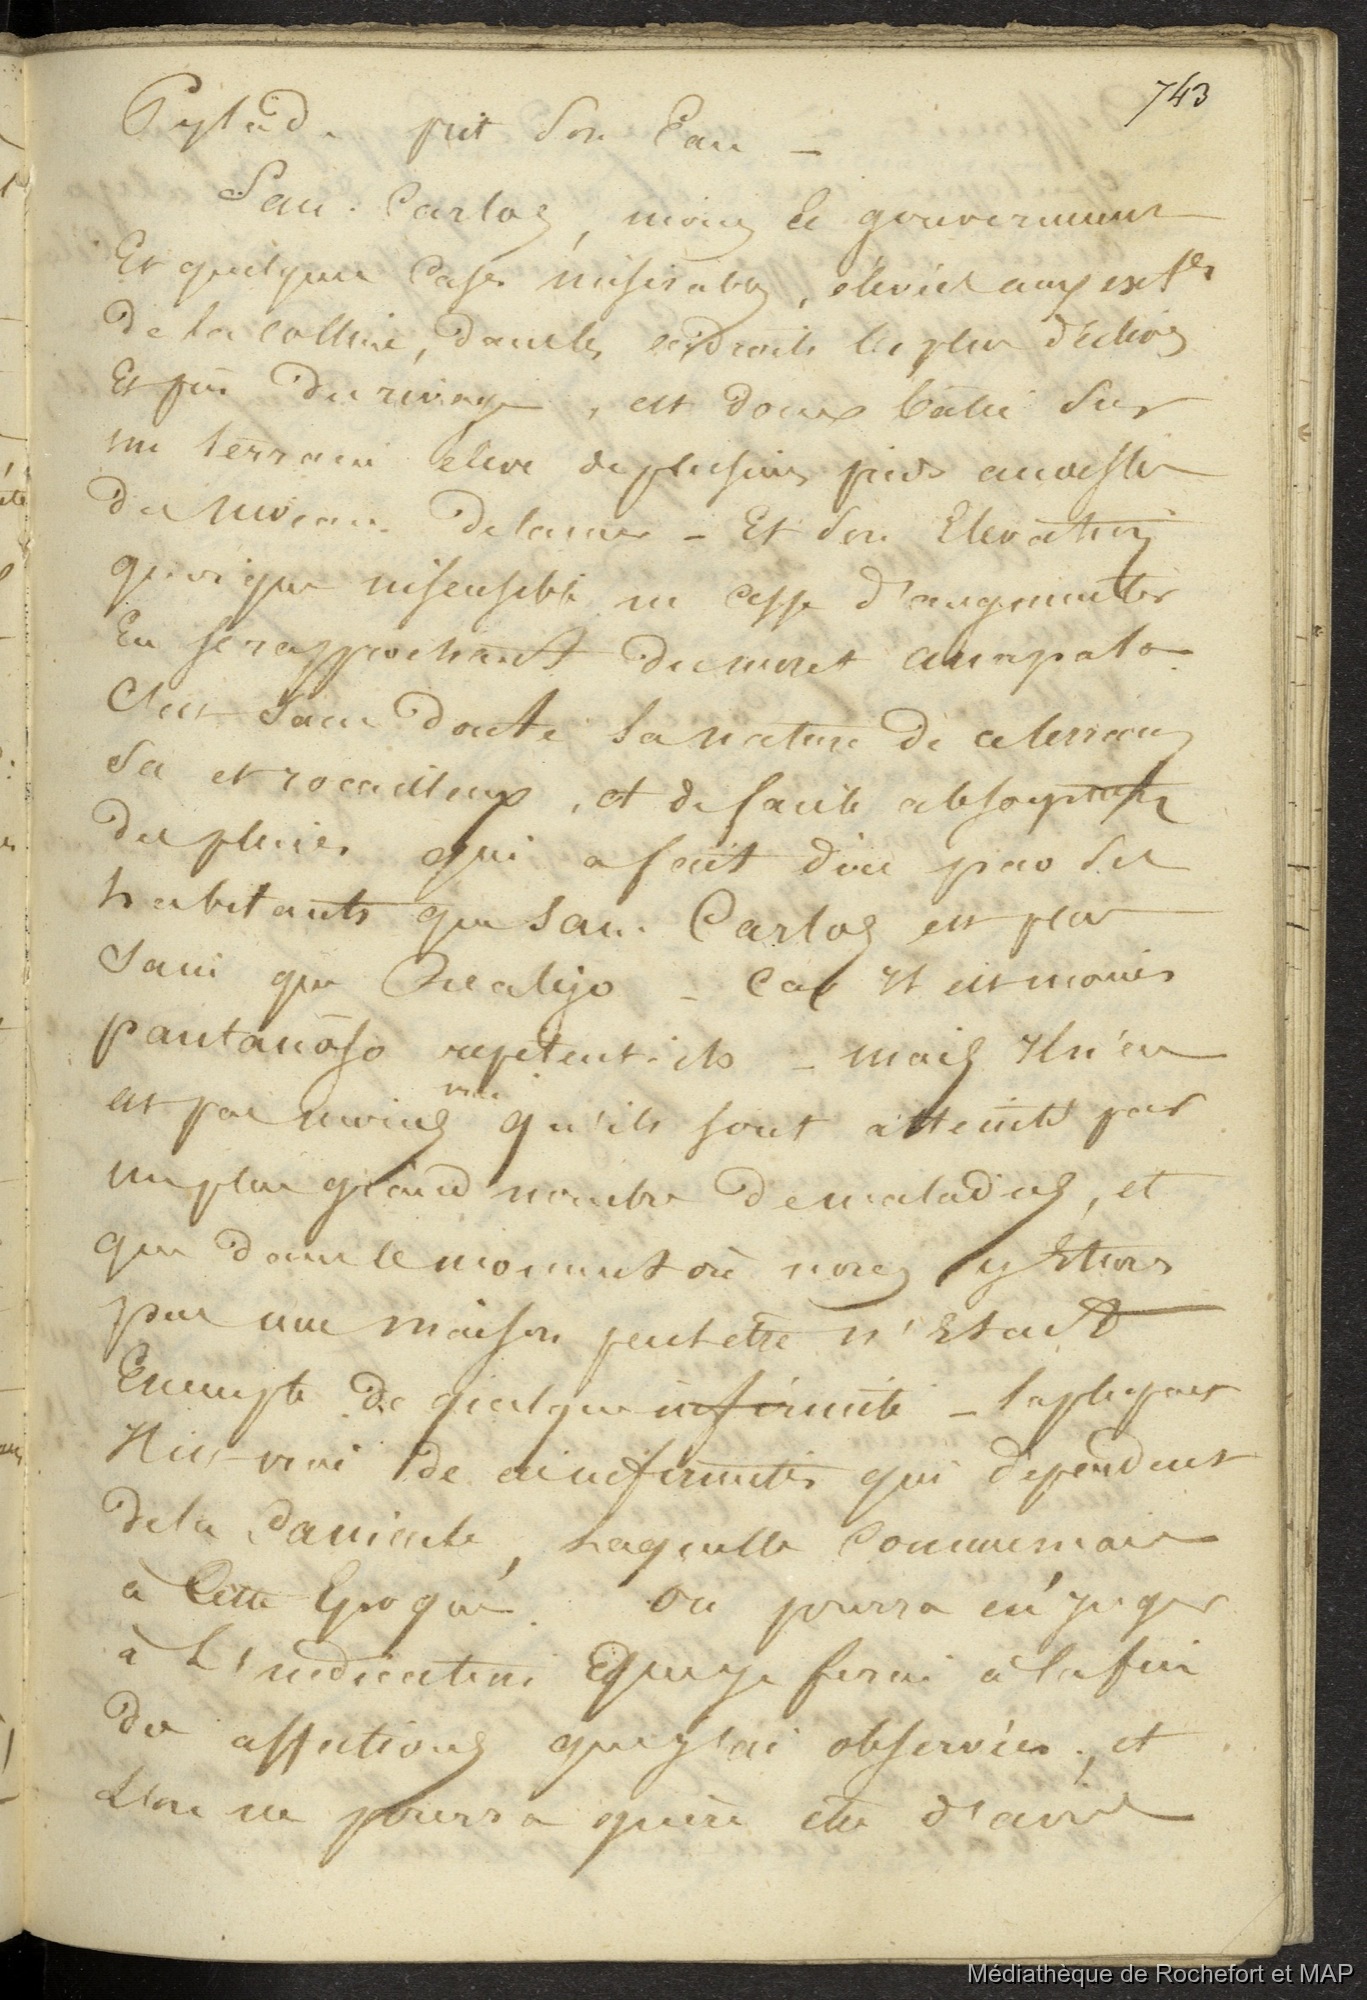 743
Pylade fit son Eau —
San. Carlos, moins le gouvernement
Et quelques cases miserables, élevées aux exter
de la colline, dans les endroits les plus déclives
Et près du rivage, est donc bâti sur
un terrain elevé de plusieurs pieds au dessus
du niveau de la mer — Et son Elevation
quoique insensible ne cesse d'augmenter
En se rapprochant du moret
C'est sans doute la nature de ce terrain
sec et rocailleux, et de facile absorption
des pluies qui a fait dire par ses
habitants que San. Carlos est plus
sain que Realijo — Car Il est moins
pantanoso repetent-ils — mais Il n'en
est pas moins vrai qu'ils sont atteints par
un plus grand nombre de maladies, et
que dans le moment où nous y Etions
pas une maison peut etre n'Etait
Exempte de quelque infirmité — la plupart
Il est vrai de ces infirmités qui dependent
de la , laquelle commencait
à Cette Epoque. On pourra en juger
à L'indication que je ferai à la fin
des affections que j'ai observées, et
L'on ne pourra guère etre d'avis
Médiathèque de Rochefort et MAP